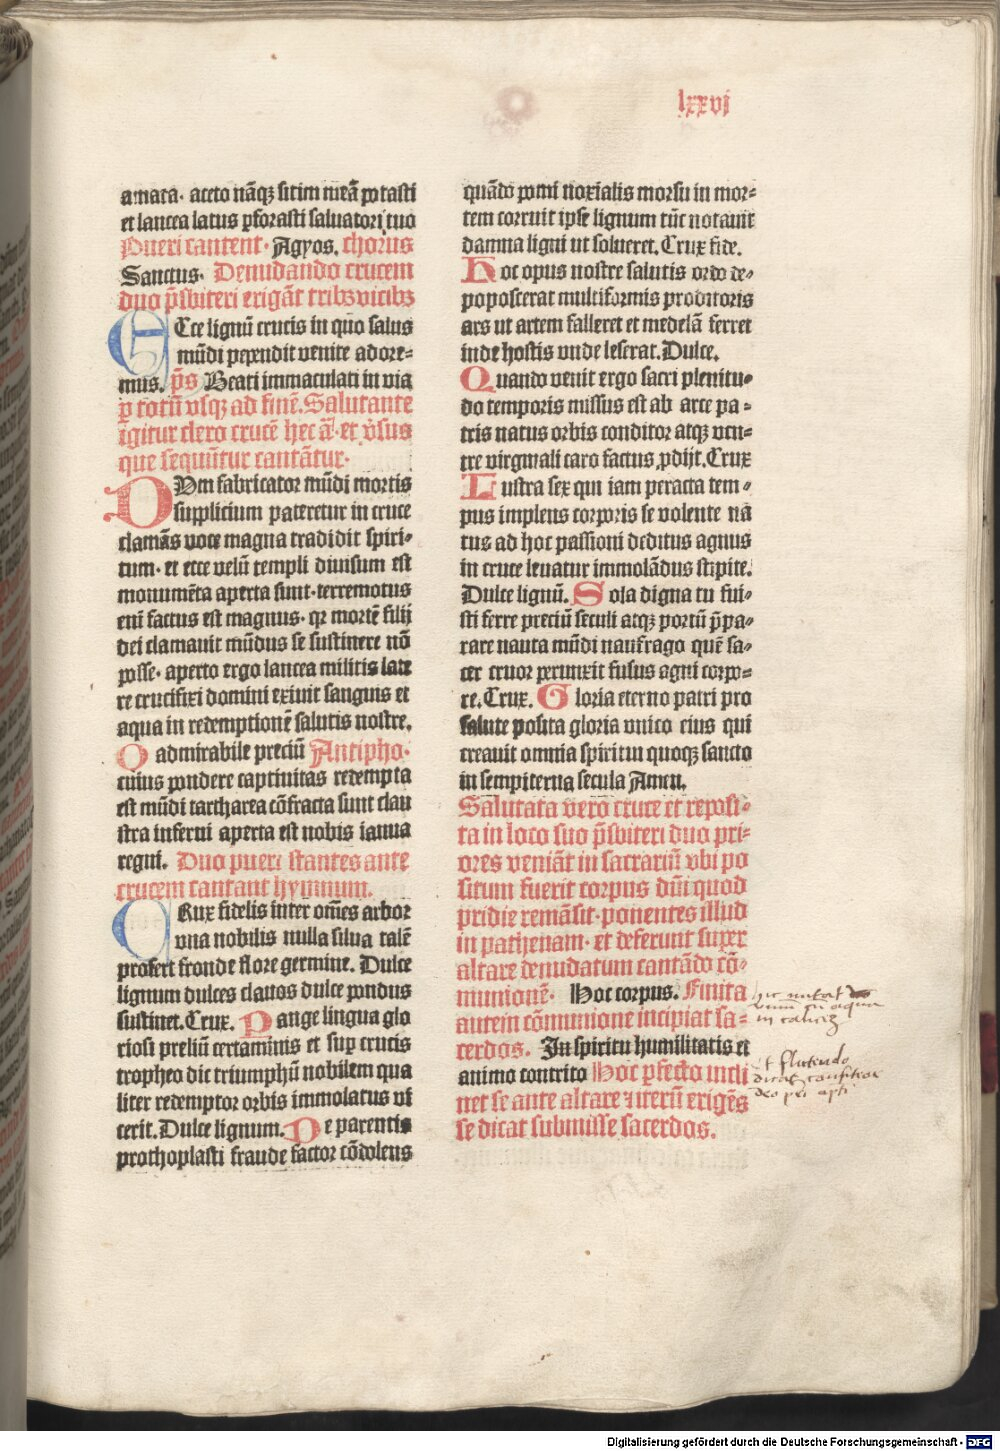 lxxvj
amara· aceto nāqꝫ sitim meā potasti
et lancea latus ꝑforasti saluatori tuo
Pueri cantent· Agyos. chorus
Sanctus· Denudando crucem
duo p̄sbiteri erigāt tribꝫ vicibꝫ
ECce lignū crucis in quo salus
mūdi pependit venite adore⸗
mus. p̄s Beati immaculati in via
ꝑ totū vsqꝫ ad finē. Salutante
igitur clero crucē hec ā· et v̉sus
que sequūtur cantātur·
DVm fabricator mūdi mortis
supplicium pateretur in cruce
clamās voce magna tradidit spiri⸗
tum· et ecce velū templi diuisum est
monumēta aperta sunt· terremotus
em̄ factus est magnus· qꝛ mortē filij
dei clamauit mūdus se sustinere nō
posse· aperto ergo lancea militis late
re crucifixi domini exiuit sanguis et
aqua in redemptionē salutis nostre.
O admirabile preciū Antipho·
cuius pondere captiuitas redempta
est mūdi tartharea cōfracta sunt clau
stra inferni aperta est nobis ianua
regni. Duo pueri stantes ante
crucem cantant hymnum.
CRux fidelis inter om̄es arbor
vna nobilis nulla silua talē
profert fronde flore germine. Dulce
lignum dulces clauos dulce pondus
sustinet. Crux. Pange lingua glo
riosi preliū certaminis et suꝑ crucis
tropheo dic triumphū nobilem qua
liter redemptor orbis immolatus vi
cerit. Dulce lignum. De parentis
prothoplasti fraude factor cōdolens
quādo pomi noxialis morsu in mor⸗
tem corruit ipse lignum tūc notauit
damna ligni ut solueret. Crux fide.
Hoc opus nostre salutis ordo de⸗
poposcerat multiformis proditoris
ars ut artem falleret et medelā ferret
inde hostis vnde leserat. Dulce.
Quando venit ergo sacri plenitu⸗
do temporis missus est ab arce pa⸗
tris natus orbis conditor atqꝫ ven⸗
tre virginali caro factus ꝓdijt. Crux
Lustra sex qui iam peracta tem⸗
pus implens corporis se volente na
tus ad hoc passioni deditus agnus
in cruce leuatur immolādus stipite.
Dulce lignū. Sola digna tu fui⸗
sti ferre preciū seculi atqꝫ portū p̄pa⸗
rare nauta mūdi naufrago quē sa⸗
cer cruor perunxit fusus agni corpo⸗
re. Crux. Gloria eterno patri pro
salute posita gloria vnico eius qui
creauit omnia spiritui quoqꝫ sancto
in sempiterna secula Amen.
Salutata vero cruce et reposi⸗
ta in loco suo p̄sbiteri duo pri⸗
ores veniāt in sacrariū vbi po
situm fuerit corpus dn̄i quod
pridie remāsit· ponentes illud
in pathenam· et deferunt super
altare denudatum cantādo cō⸗
munionē· Hoc corpus. Finita
autem cōmunione incipiat sa⸗
cerdos. In spiritu humilitatis et
animo contrito Hoc ꝑfecto incli
net se ante altare ⁊ iterū erigēs
se dicat submisse sacerdos.
in calicem
Digitalisierung gefördert durch die Deutsche Forschungsgemeinschaft - DFG